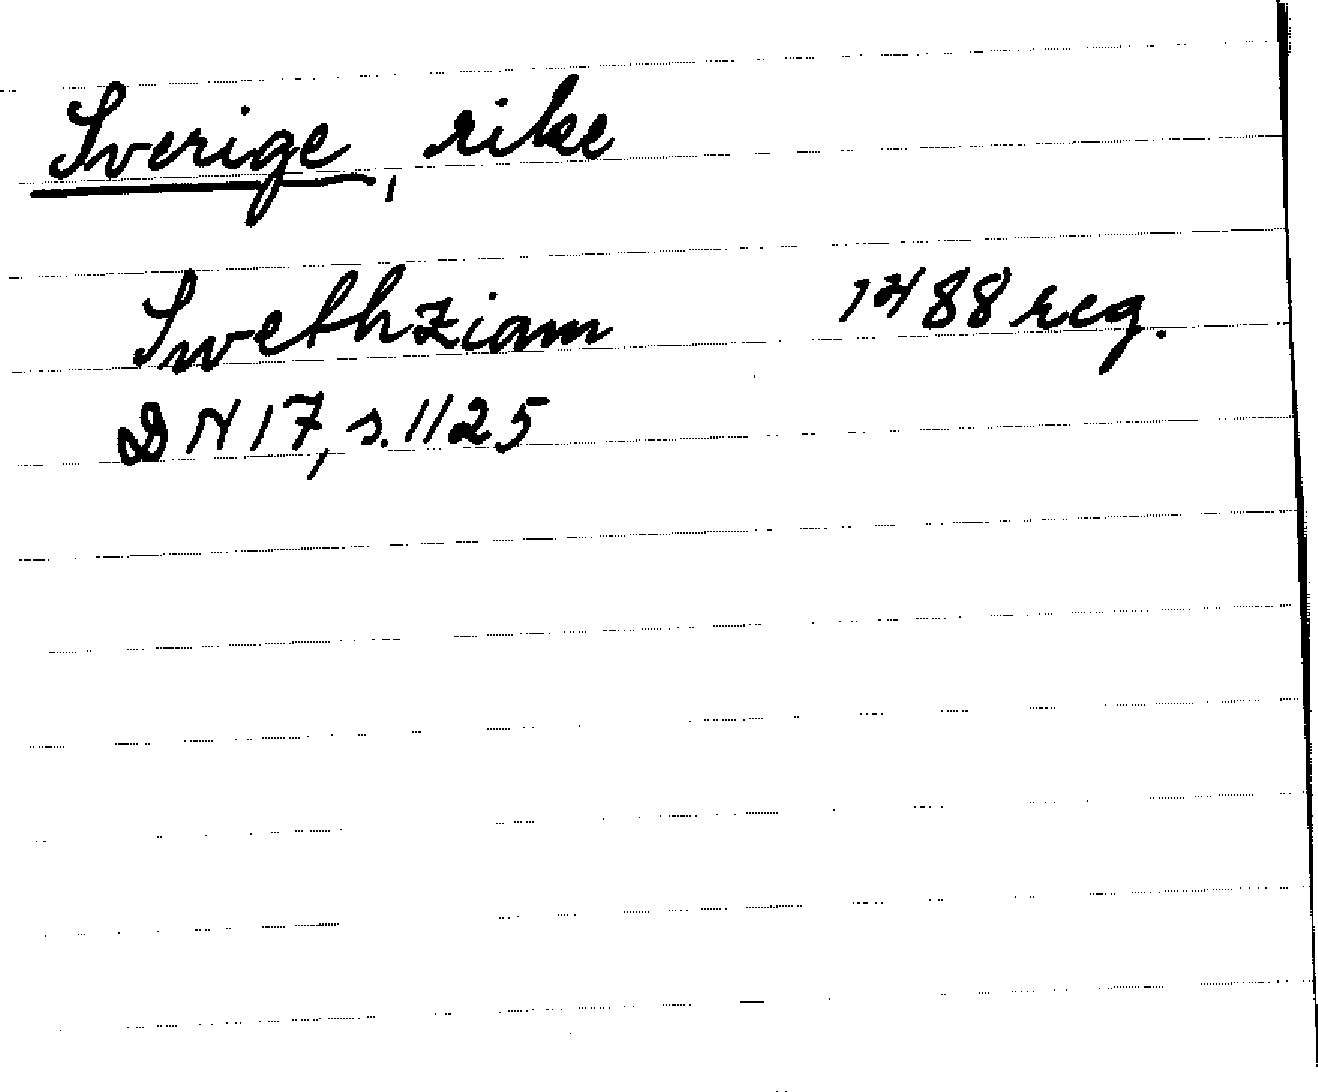 Sverige, rike
Swethziam 1488 reg.
DN 17, s. 1125